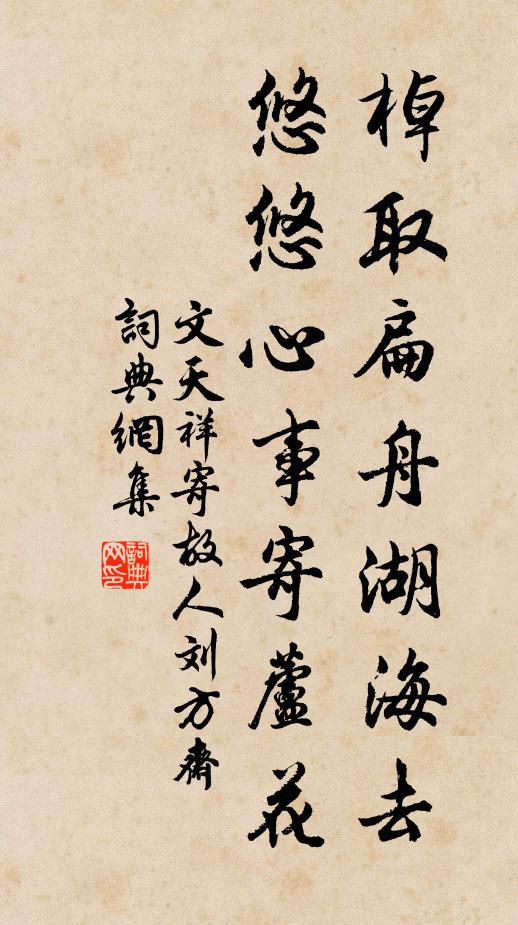 棹取扁舟湖海去
悠悠心事寄蘆花
文天祥寄故人刘方齋
詞典網集
詞典网印